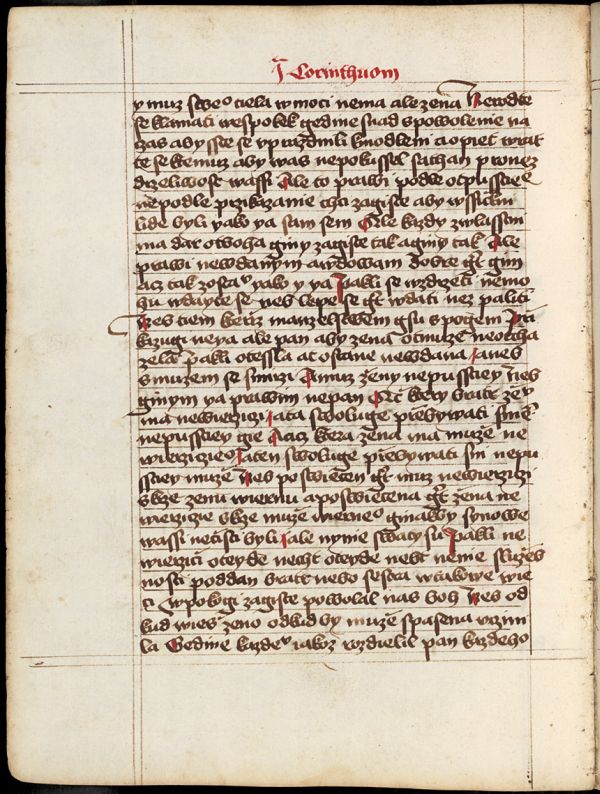 J Corinthuom
y muz sweo tiela w moci nema ale zena Newodte
se klamati wespolek gedine snad s powolenie na
czas aby sste se vprazdnili k modlem a opiet wrat
te se k temuz aby was nepokussel sathan pro nez
drzeliwost wassi Ale to prawi podle otpusscie
ne podle przikazanie chci zagiste aby wssickni
lide byli yako ya sam sem Ale kazdy zwlasstni
ma dar ot boha giny zagiste tak a giny tak Ale
prawi newdanym a wdowam dobre gt gim
acz tak zostau yako y ya Pakli se zdrzeti nemo
hu wdayte se neb lepe se gt wdati nez paliti
Nes tiem kteriz manzelstwem gsu spogeni Pri
kazugi ne ya ale pan aby zena ot muze neotcha
zela Pakli otessla at ostane newdana a neb
s muzem se smirzi A muz zeny nepusstiey Neb
ginym ya prawim ne pan Acz ktery bratr zenu
ma newierzizi a ta swoluge prebywati s nim
nepusstiey gie A acz ktera zena ma muze ne
wierziczieo a ten swoluge prebywati s ni nepu
sstiey muze Neb poswiecen gt muz newierzizi
skrze zenu wiernu a poswiecena gt zena ne
wierzizie skrze muze wierneo ginak by synowe
wassi necisti byli ale nynie swaty su Pakli ne
wierzici oteyde necht oteyde nebt nenie sluzeb
nosti poddan bratr nebo sestra w takowe wie
ci w pokogi zagiste powolal nas boh Neb od
kud wies zeno odkud by muze spasena vczini
la Gedine kazdeu yakoz rozdielil pan kazdeho